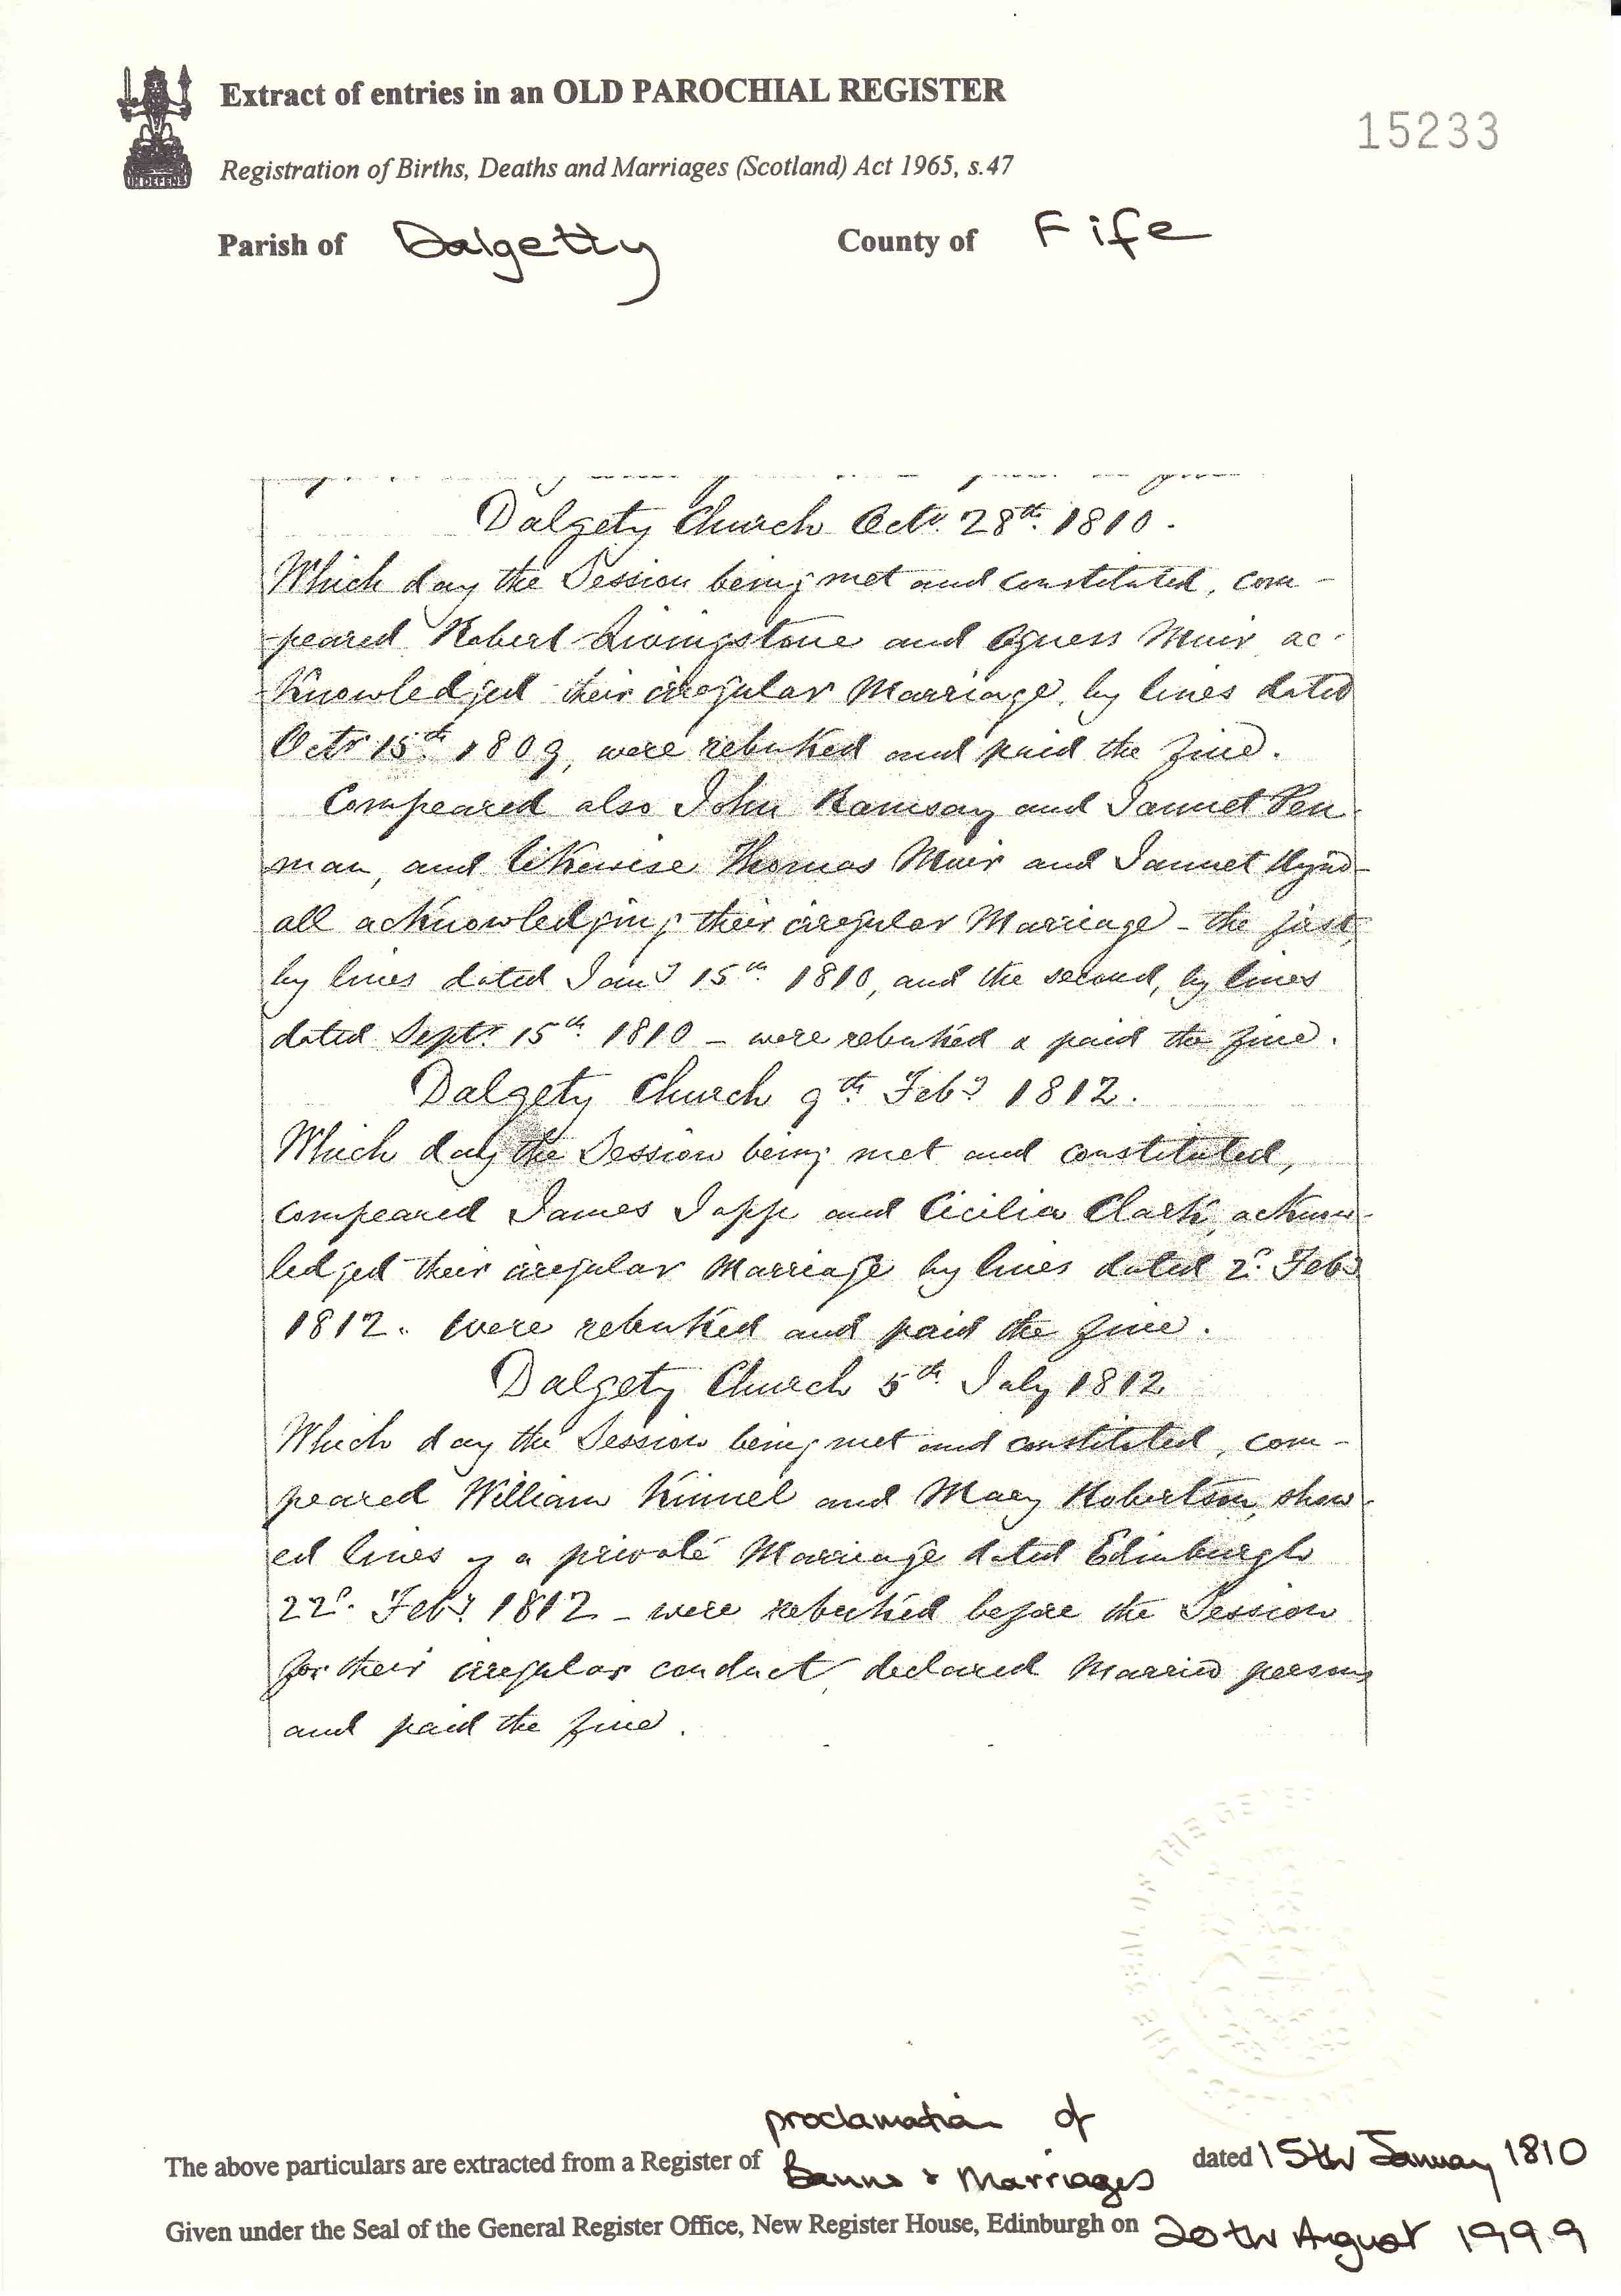 Extract of entries in an OLD PAROCHIAL REGISTER
15233
Registration of Births, Deaths and Marriages (Scotland) Act 1965, s.47
Parish of Dalgetty County of Fife
Dalgety Church Octr. 28th. 1810.
Which day the Session being met and constituted, com-
peared Robert Livingstone and Agness Muir ac-
knowledged their irregular Marriage, by lines dated
Octr 15th 1809, were rebuked and paid the fine.
Compeared also John Ramsay and Jannet Pen
man, and likewise Thomas Muir and Jannet Hynd
all acknowledging their irregular Marriage - the first,
by lines dated Jany 15th 1810, and the second, by lines
dated Septr. 15th. 1810 - were rebuked & paid the fine.
Dalgety Church 9th. Feby 1812.
Which day the Session being met and constituted,
compeared James Japp and Cicilia Clark, acknow-
ledged their irregular Marriage by lines dated 2d. Feby
1812. were rebuked and paid the fine.
Dalgety Church 5th. July 1812
Which day the Session being met and constituted, com-
peared William Kinnel and Mary Robertson, show-
ed lines of a private Marriage dated Edinburgh
22d. Feby 1812 - were rebuked before the Session
for their irregular conduct, declared Married persons
and paid the fine.
THE SEAL OF THE GENE
proclamation of
The above particulars are extracted from a Register of Banns & Marriages dated 15th January 1810
Given under the Seal of the General Register Office, New Register House, Edinburgh on 20th August 1999